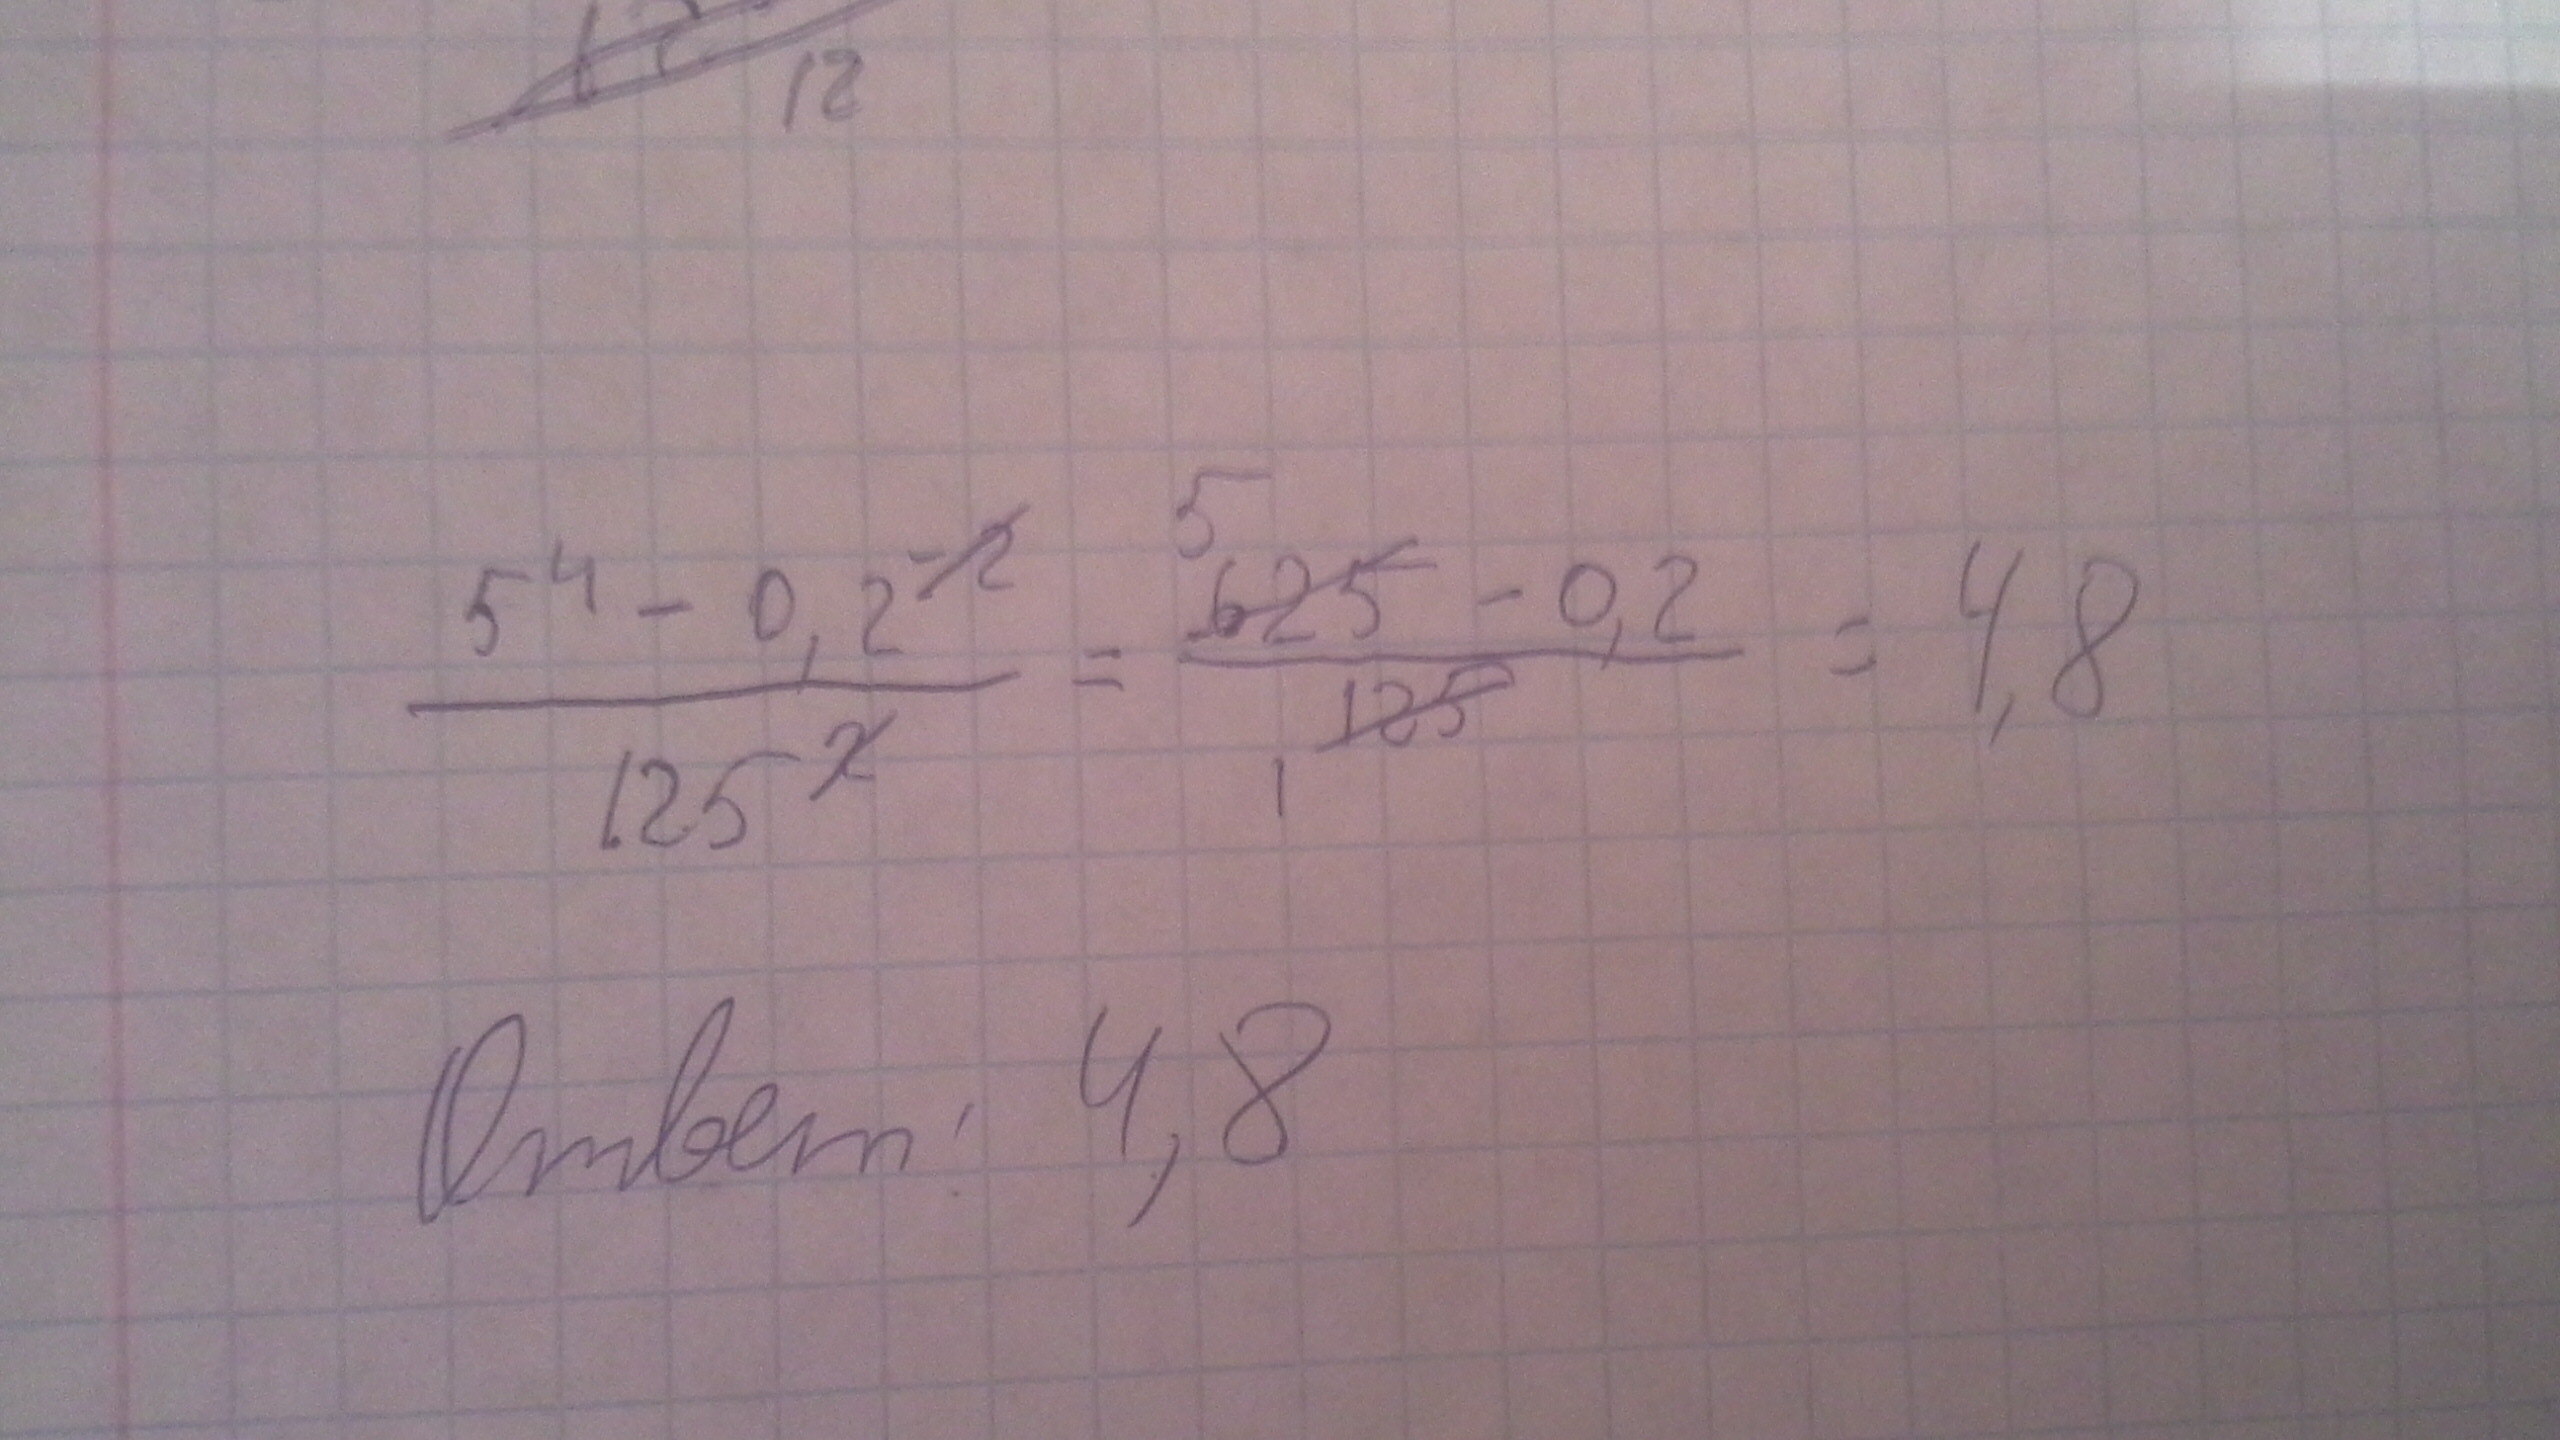 12
5⁴ - 0,2⁻² / 125² = 5 625 - 0,2 / 125 1 = 4,8
Ответ: 4,8